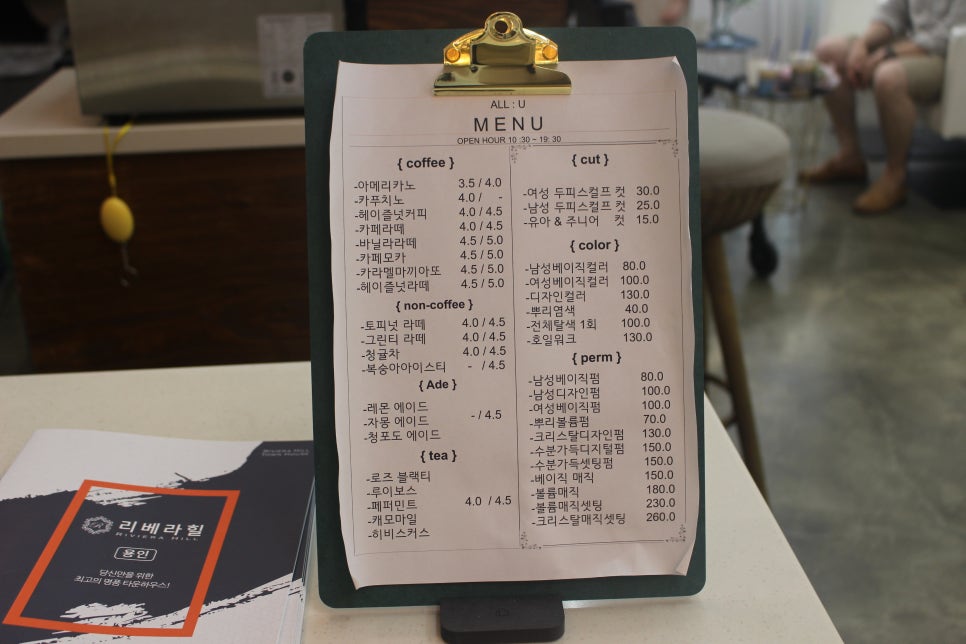 ALL : U
MENU
OPEN HOUR 10 :30 ~ 19: 30
{ coffee }
-아메리카노 3.5 / 4.0
-카푸치노 4.0 / -
-헤이즐넛커피 4.0 / 4.5
-카페라떼 4.0 / 4.5
-바닐라라떼 4.5 / 5.0
-카페모카 4.5 / 5.0
-카라멜마끼아또 4.5 / 5.0
-헤이즐넛라떼 4.5 / 5.0
{ non-coffee }
-토피넛 라떼 4.0 / 4.5
-그린티 라떼 4.0 / 4.5
-청귤차 4.0 / 4.5
-복숭아아이스티 - / 4.5
{ Ade }
-레몬 에이드
-자몽 에이드 - / 4.5
-청포도 에이드
{ tea }
-로즈 블랙티
-루이보스
-페퍼민트 4.0 / 4.5
-캐모마일
-히비스커스
{ cut }
-여성 두피스컬프 컷 30.0
-남성 두피스컬프 컷 25.0
-유아 & 주니어 컷 15.0
{ color }
-남성베이직컬러 80.0
-여성베이직컬러 100.0
-디자인컬러 130.0
-뿌리염색 40.0
-전체탈색 1회 100.0
-호일워크 130.0
{ perm }
-남성베이직펌 80.0
-남성디자인펌 100.0
-여성베이직펌 100.0
-뿌리볼륨펌 70.0
-크리스탈디자인펌 130.0
-수분가득디지털펌 150.0
-수분가득셋팅펌 150.0
-베이직 매직 150.0
-볼륨매직 180.0
-볼륨매직셋팅 230.0
-크리스탈매직셋팅 260.0
RIVIERA HILL
TOWN HOUSE
리베라힐
RIVIERA HILL
용인
당신만을 위한
최고의 명품 타운하우스!